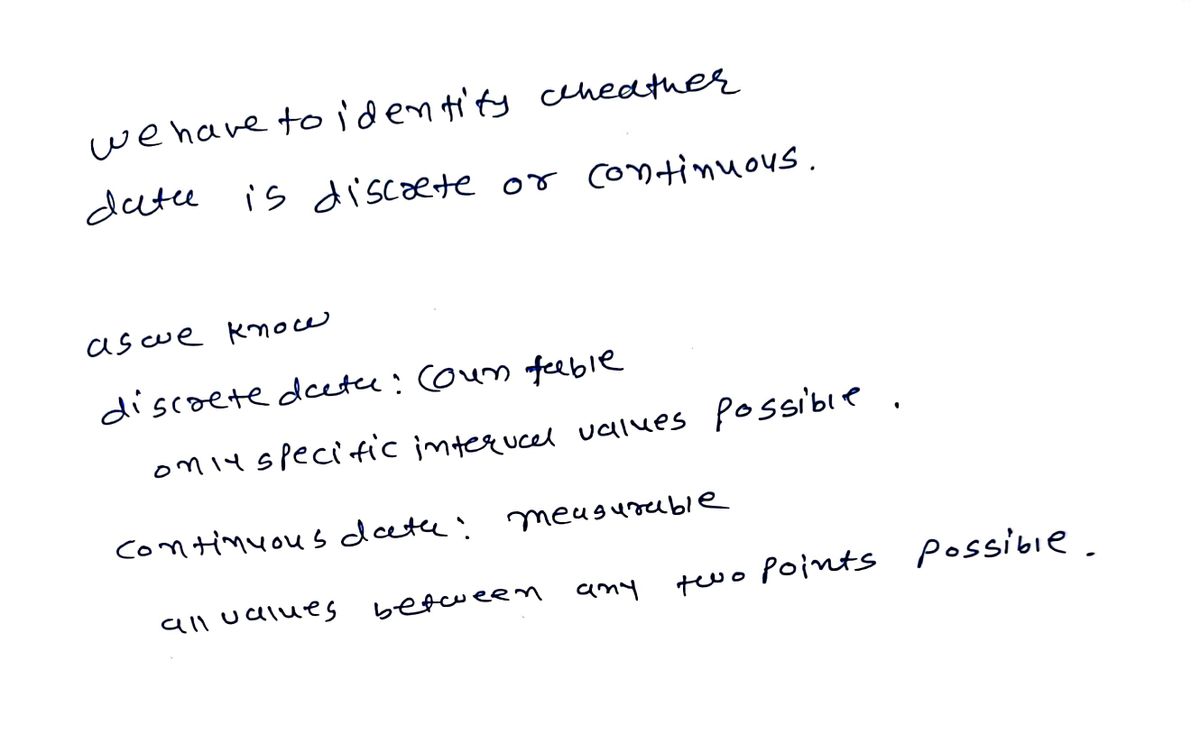 we have to identify wheather
data is discrete or continuous.
as we know
discrete data: Countable
only specific interval values possible.
continuous data: measurable
all values between any two points possible.